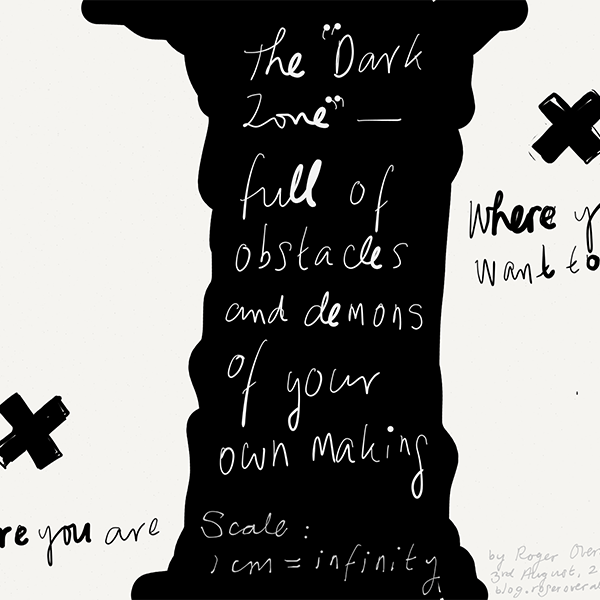 The "Dark
Zone" —
full of
obstacles
and demons
of your
own making
Scale:
1 cm = infinity
Where y
want to
re you are
by Roger Over
3rd August, 2
blog.rogerovera